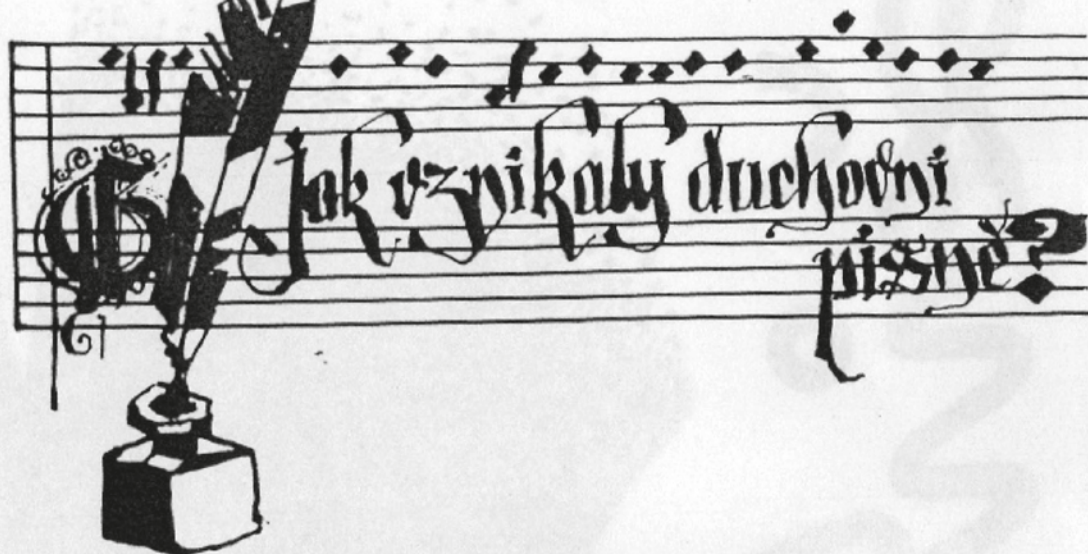 Jak vznikaly duchovni
pissně?